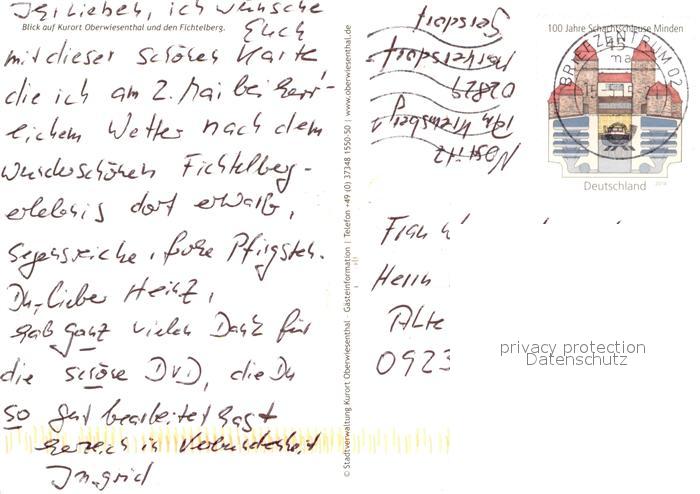 Ihr Lieben, ich wünsche
Blick auf Kurort Oberwiesenthal und den Fichtelberg.
Euch
mit dieser schönen Karte
die ich am 2. Mai bei herr-
lichem Wetter nach dem
wunderschönen Fichtelberg-
erlebnis dort erwarb,
segensreiche, frohe Pfingsten.
Du, lieber Heinz,
hab ganz vielen Dank für
die schöne DVD, die Du
so gut bearbeitet hast
herzlich in Verbundenheit
Ingrid
© Stadtverwaltung Kurort Oberwiesenthal · Gästeinformation | Telefon +49 (0) 37348 1550-50 | www.oberwiesenthal.de
02829
100 Jahre Schachtschleuse Minden
BRIEFZENTRUM 02
Deutschland
2014
Frau
Herrn
Alte
0923
privacy protection
Datenschutz